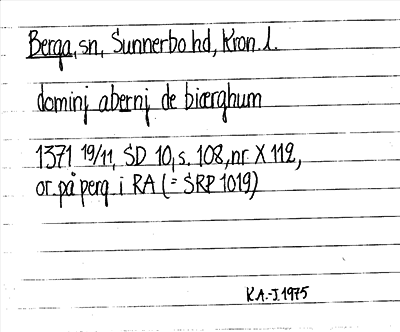 Berga, sn, Sunnerbo hd, Kron. l.
dominj abernj de biærghum
1371 19/11, SD 10, s. 108, nr X 112,
or. på perg. i RA (= SRP 1019)
K.A.-J. 1975